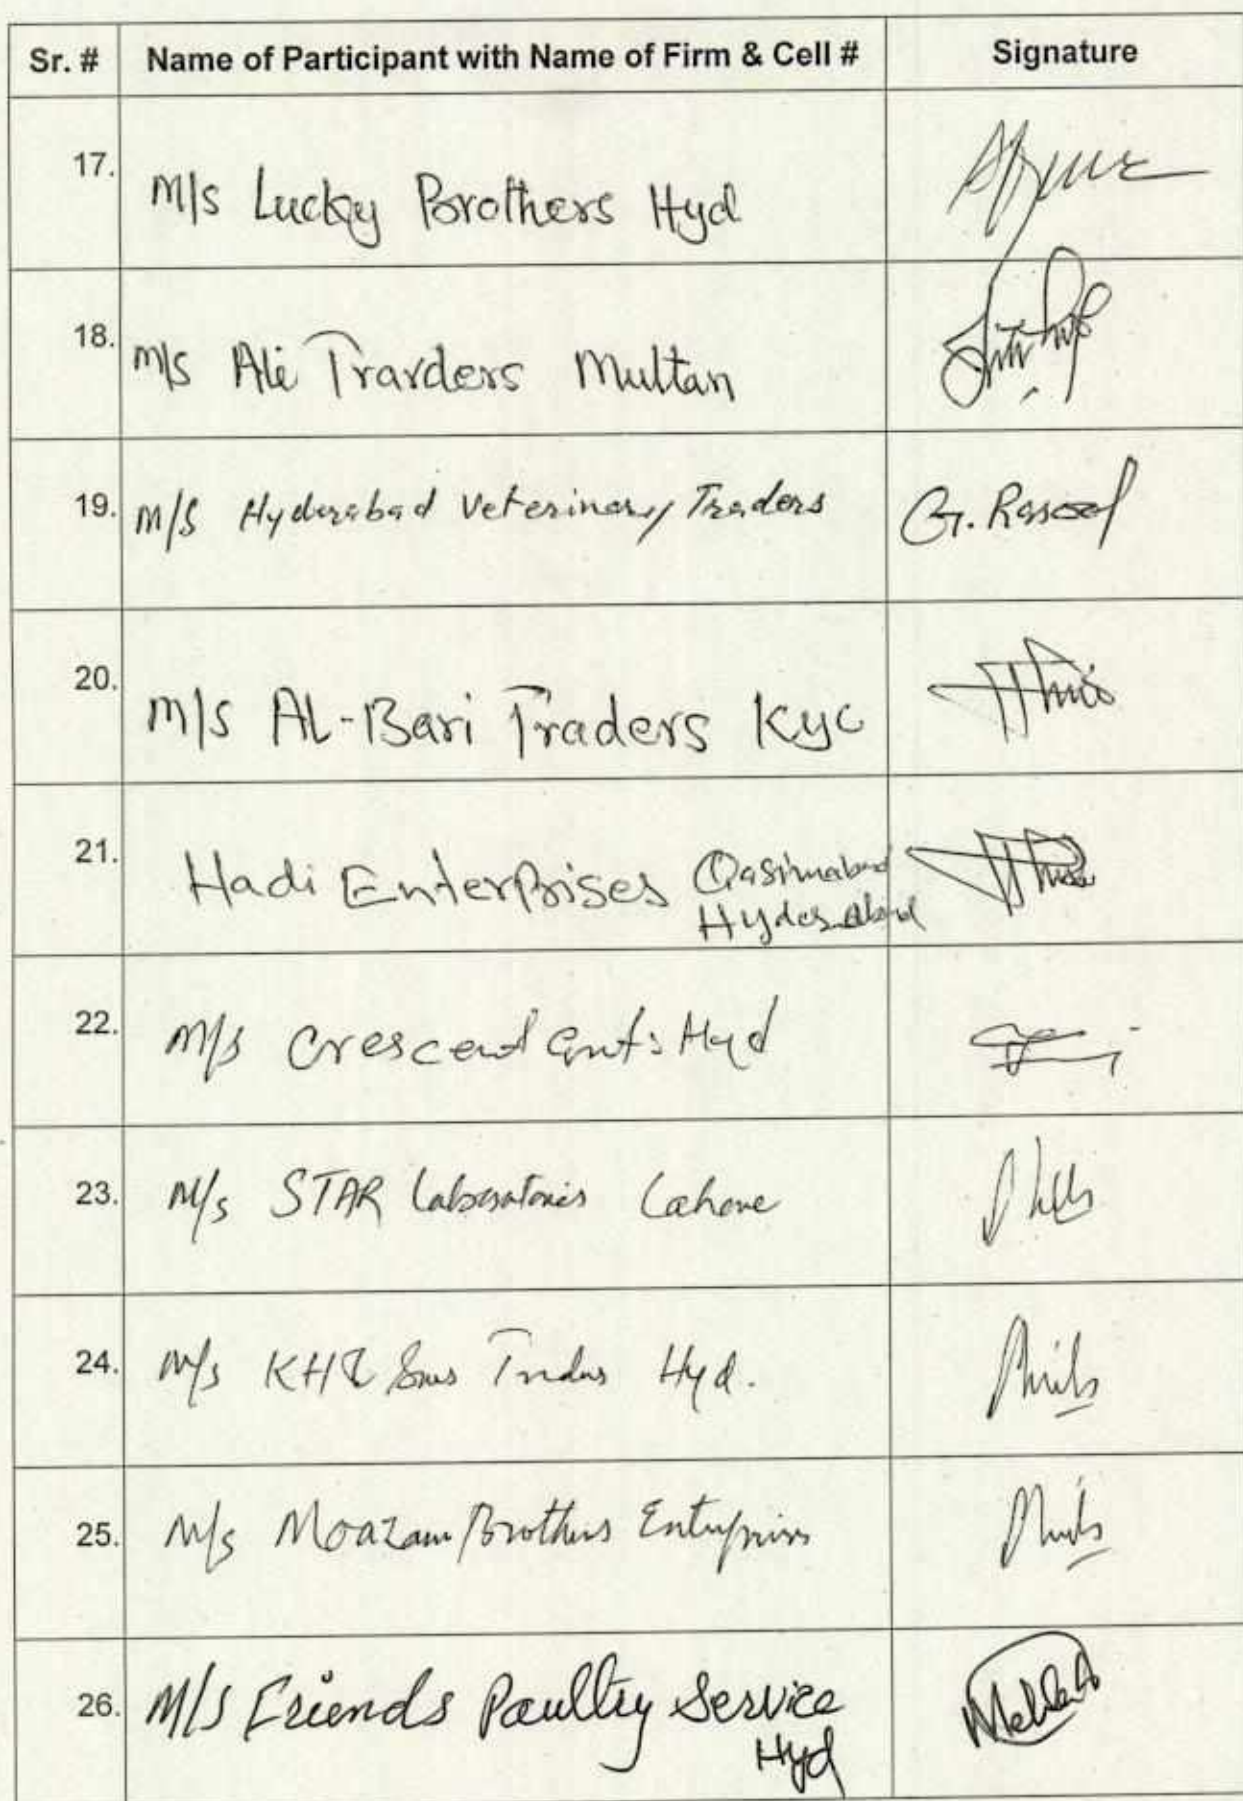 Sr. # Name of Participant with Name of Firm & Cell # Signature
17. M/s Lucky Brothers Hyd
18. M/s Ali Trarders Multan
19. M/S Hyderabad Veterinary Traders G. Rasool
20. M/s AL-Bari Traders Kyc
21. Hadi Enterprises Qasimabad
Hyderabad
22. M/s Crescent Ent: Hyd
23. M/s STAR Laboratories Lahore
24. M/s Sons Traders Hyd.
25. M/s Moazam Brothers Enterprises
26. M/S Friends Paultry Service
Hyd